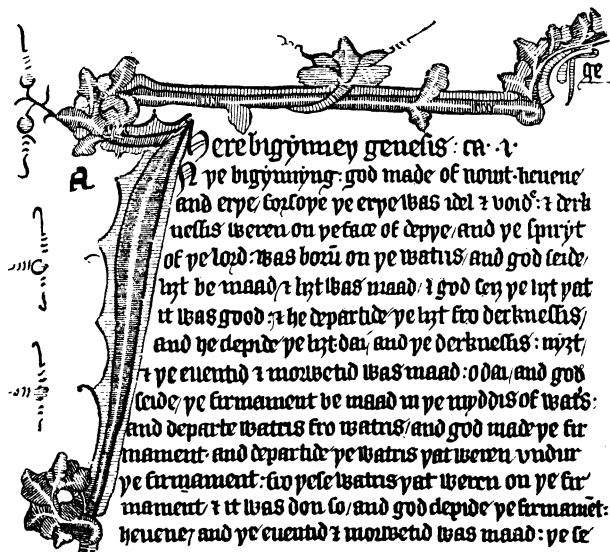 ge
Here bigynney genesis : ca · i ·
a
N ye bigynnyng : god made of nouȝt · heuene
and erye / forsoye ye erye was idel ⁊ voide : ⁊ derk
nessis weren on ye face of depye / and ye spiryt
of ye lord : was borū on ye watris / and god seide /
liȝt be maad / ⁊ liȝt was maad / ⁊ god seiȝ ye liȝt yat
it was good : ⁊ he departide ye liȝt fro derknessis /
and he clepide ye liȝt dai / and ye derknessis : nyȝt /
⁊ ye euentid ⁊ morwetid was maad : o dai / and god
seide / ye firmament be maad in ye myddis of watris :
and departe watris fro watris / and god made ye fir
mament · and departide ye watris yat weren vndur
ye firmament : fro yese watris yat weren on ye fir
mament · ⁊ it was don so / and god clepide ye firmamēt :
heuene / and ye euentid ⁊ morwetid was maad : ye se